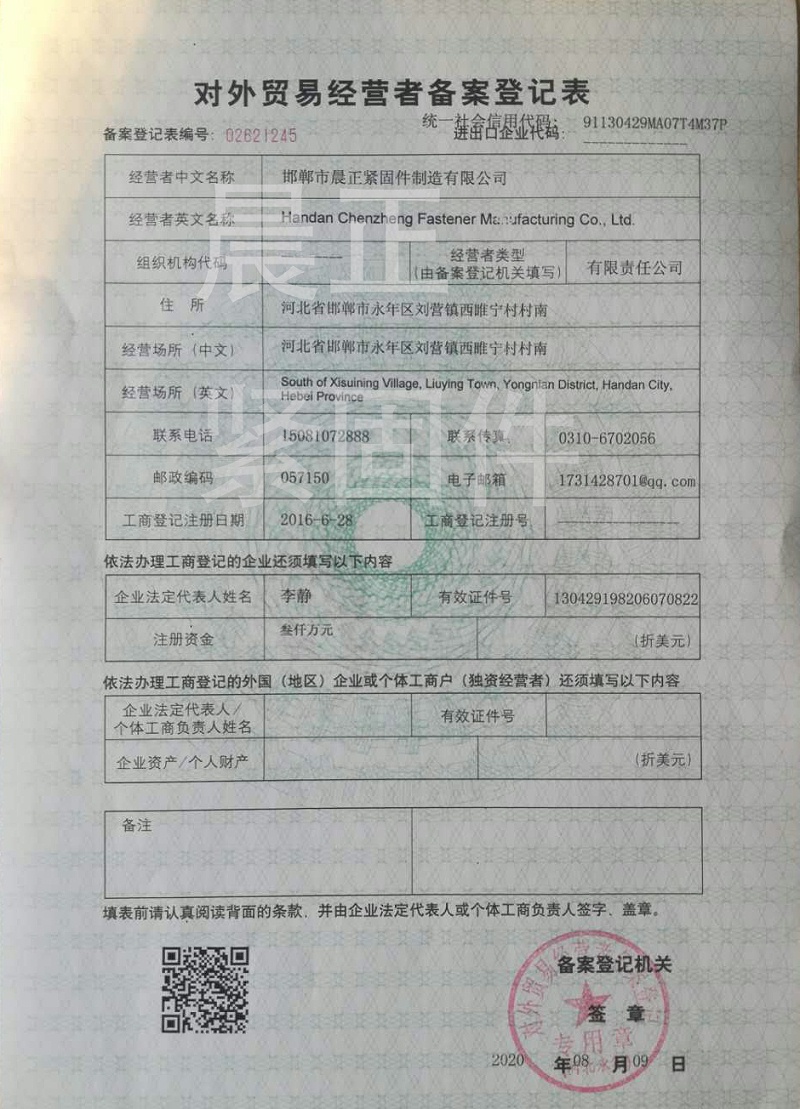 对外贸易经营者备案登记表
统一社会信用代码: 91130429MA07T4M37P
备案登记表编号: 02621245 进出口企业代码:
经营者中文名称 邯郸市晨正紧固件制造有限公司
经营者英文名称 Handan Chenzheng Fastener Manufacturing Co., Ltd.
组织机构代码 经营者类型 (由备案登记机关填写) 有限责任公司
住 所 河北省邯郸市永年区刘营镇西睢宁村村南
经营场所 (中文) 河北省邯郸市永年区刘营镇西睢宁村村南
经营场所 (英文) South of Xisuining Village, Liuying Town, Yongnian District, Handan City,
Hebei Province
联系电话 15081072888 联系传真 0310-6702056
邮政编码 057150 电子邮箱 1731428701@qq.com
工商登记注册日期 2016-6-28 工商登记注册号
依法办理工商登记的企业还须填写以下内容
企业法定代表人姓名 李静 有效证件号 130429198206070822
注册资金 叁仟万元 (折美元)
依法办理工商登记的外国 (地区) 企业或个体工商户 (独资经营者) 还须填写以下内容
企业法定代表人/
个体工商负责人姓名 有效证件号
企业资产/个人财产 (折美元)
备注
填表前请认真阅读背面的条款,并由企业法定代表人或个体工商负责人签字、盖章。
备案登记机关
签 章
专用章
2020 年 08 月 09 日
晨正
紧固件